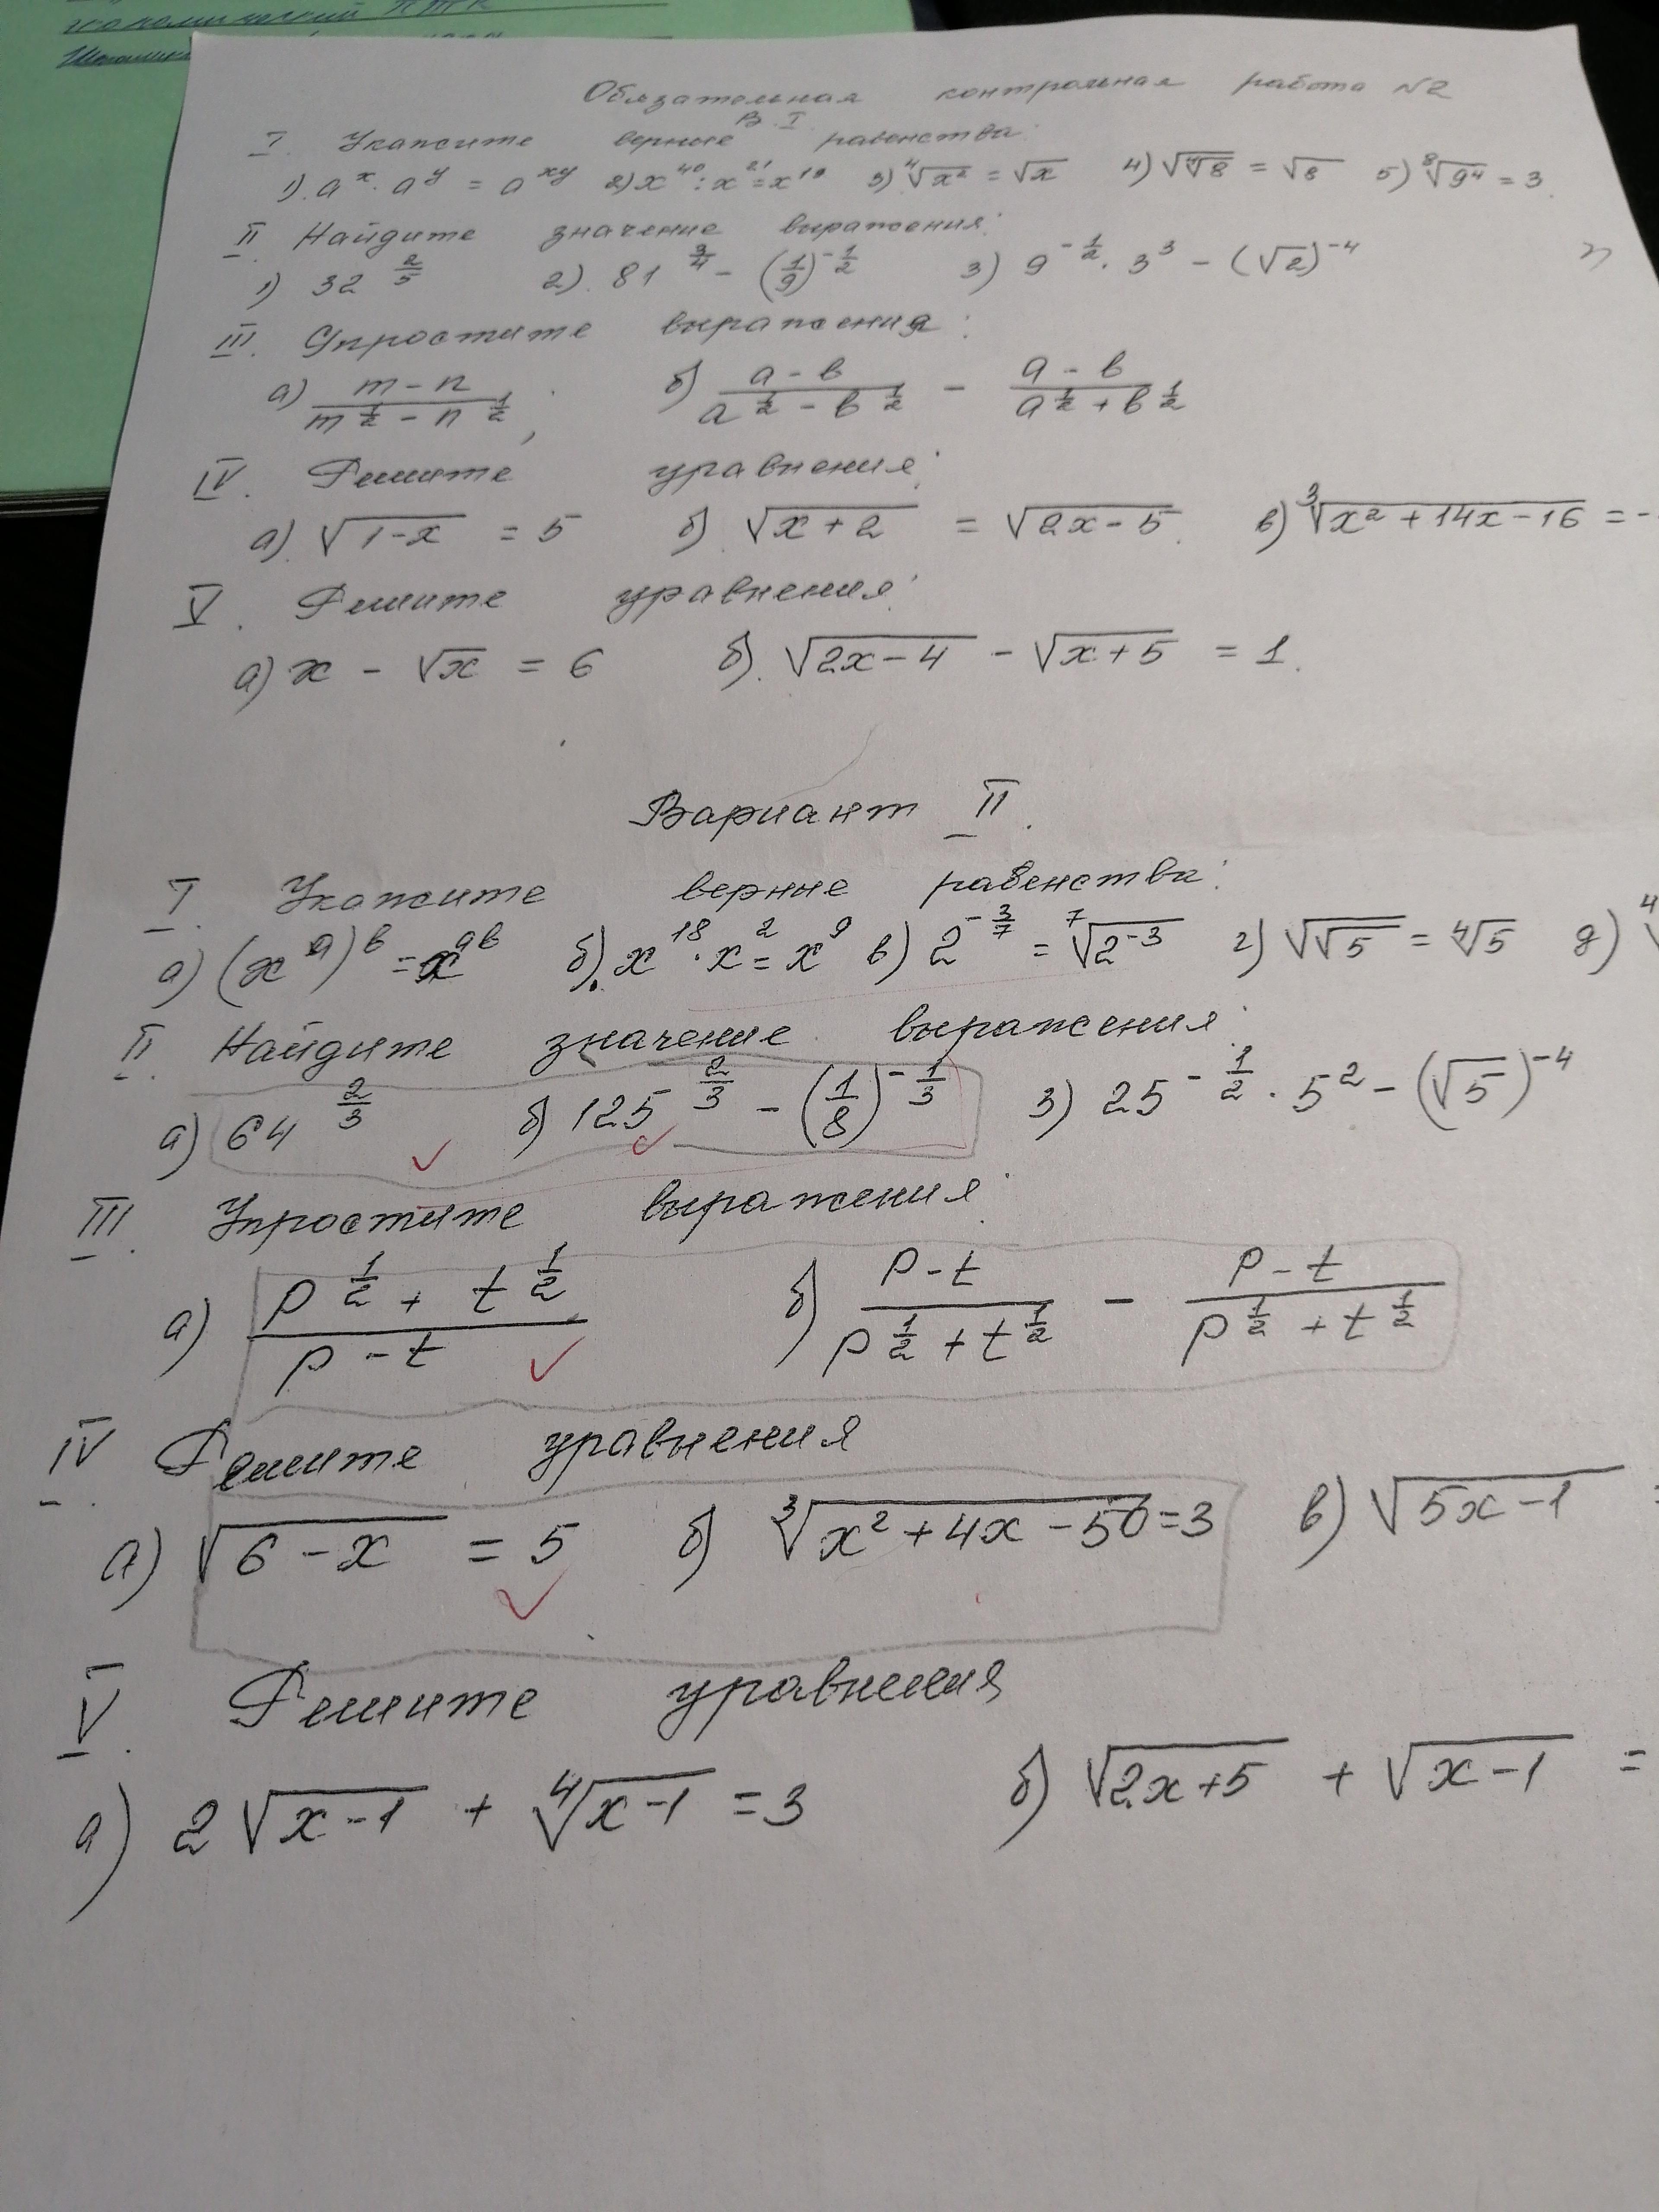 Обязательная контрольная работа №2
В. I
I. Укажите верные равенства:
1). a^x · a^y = a^xy 2) x^40 : x^21 = x^19 3) ⁴√x² = √x 4) √⁴√8 = √8 5) ⁸√9⁴ = 3
II Найдите значение выражения:
1) 32^(2/5) 2). 81^(3/4) - (1/9)^(-1/2) 3) 9^(-1/2) · 3³ - (√2)^-4
III. Упростите выражения:
а) (m - n)/(m^(1/2) - n^(1/2)), б) (a - b)/(a^(1/2) - b^(1/2)) - (a - b)/(a^(1/2) + b^(1/2))
IV. Решите уравнения:
а) √(1-x) = 5 б) √(x+2) = √(2x-5). в) ³√(x² + 14x - 16) = -
V. Решите уравнения:
а) x - √x = 6 б). √(2x-4) - √(x+5) = 1.
Вариант II.
I. Укажите верные равенства:
а) (x^a)^b = x^ab б). x^18 · x^2 = x^9 в) 2^(-3/7) = ⁷√(2^-3) г) √√5 = ⁴√5 д) ⁴√
II. Найдите значение выражения:
а) 64^(2/3) б) 125^(2/3) - (1/8)^(-1/3) 3) 25^(-1/2) · 5² - (√5)^-4
III. Упростите выражения:
а) (p^(1/2) + t^(1/2))/(p - t) б) (p - t)/(p^(1/2) + t^(1/2)) - (p - t)/(p^(1/2) + t^(1/2))
IV. Решите уравнения
а) √(6 - x) = 5 б) ³√(x² + 4x - 50) = 3 в) √(5x - 1) =
V. Решите уравнения
а) 2√(x-1) + ⁴√(x-1) = 3 б) √(2x+5) + √(x-1) =